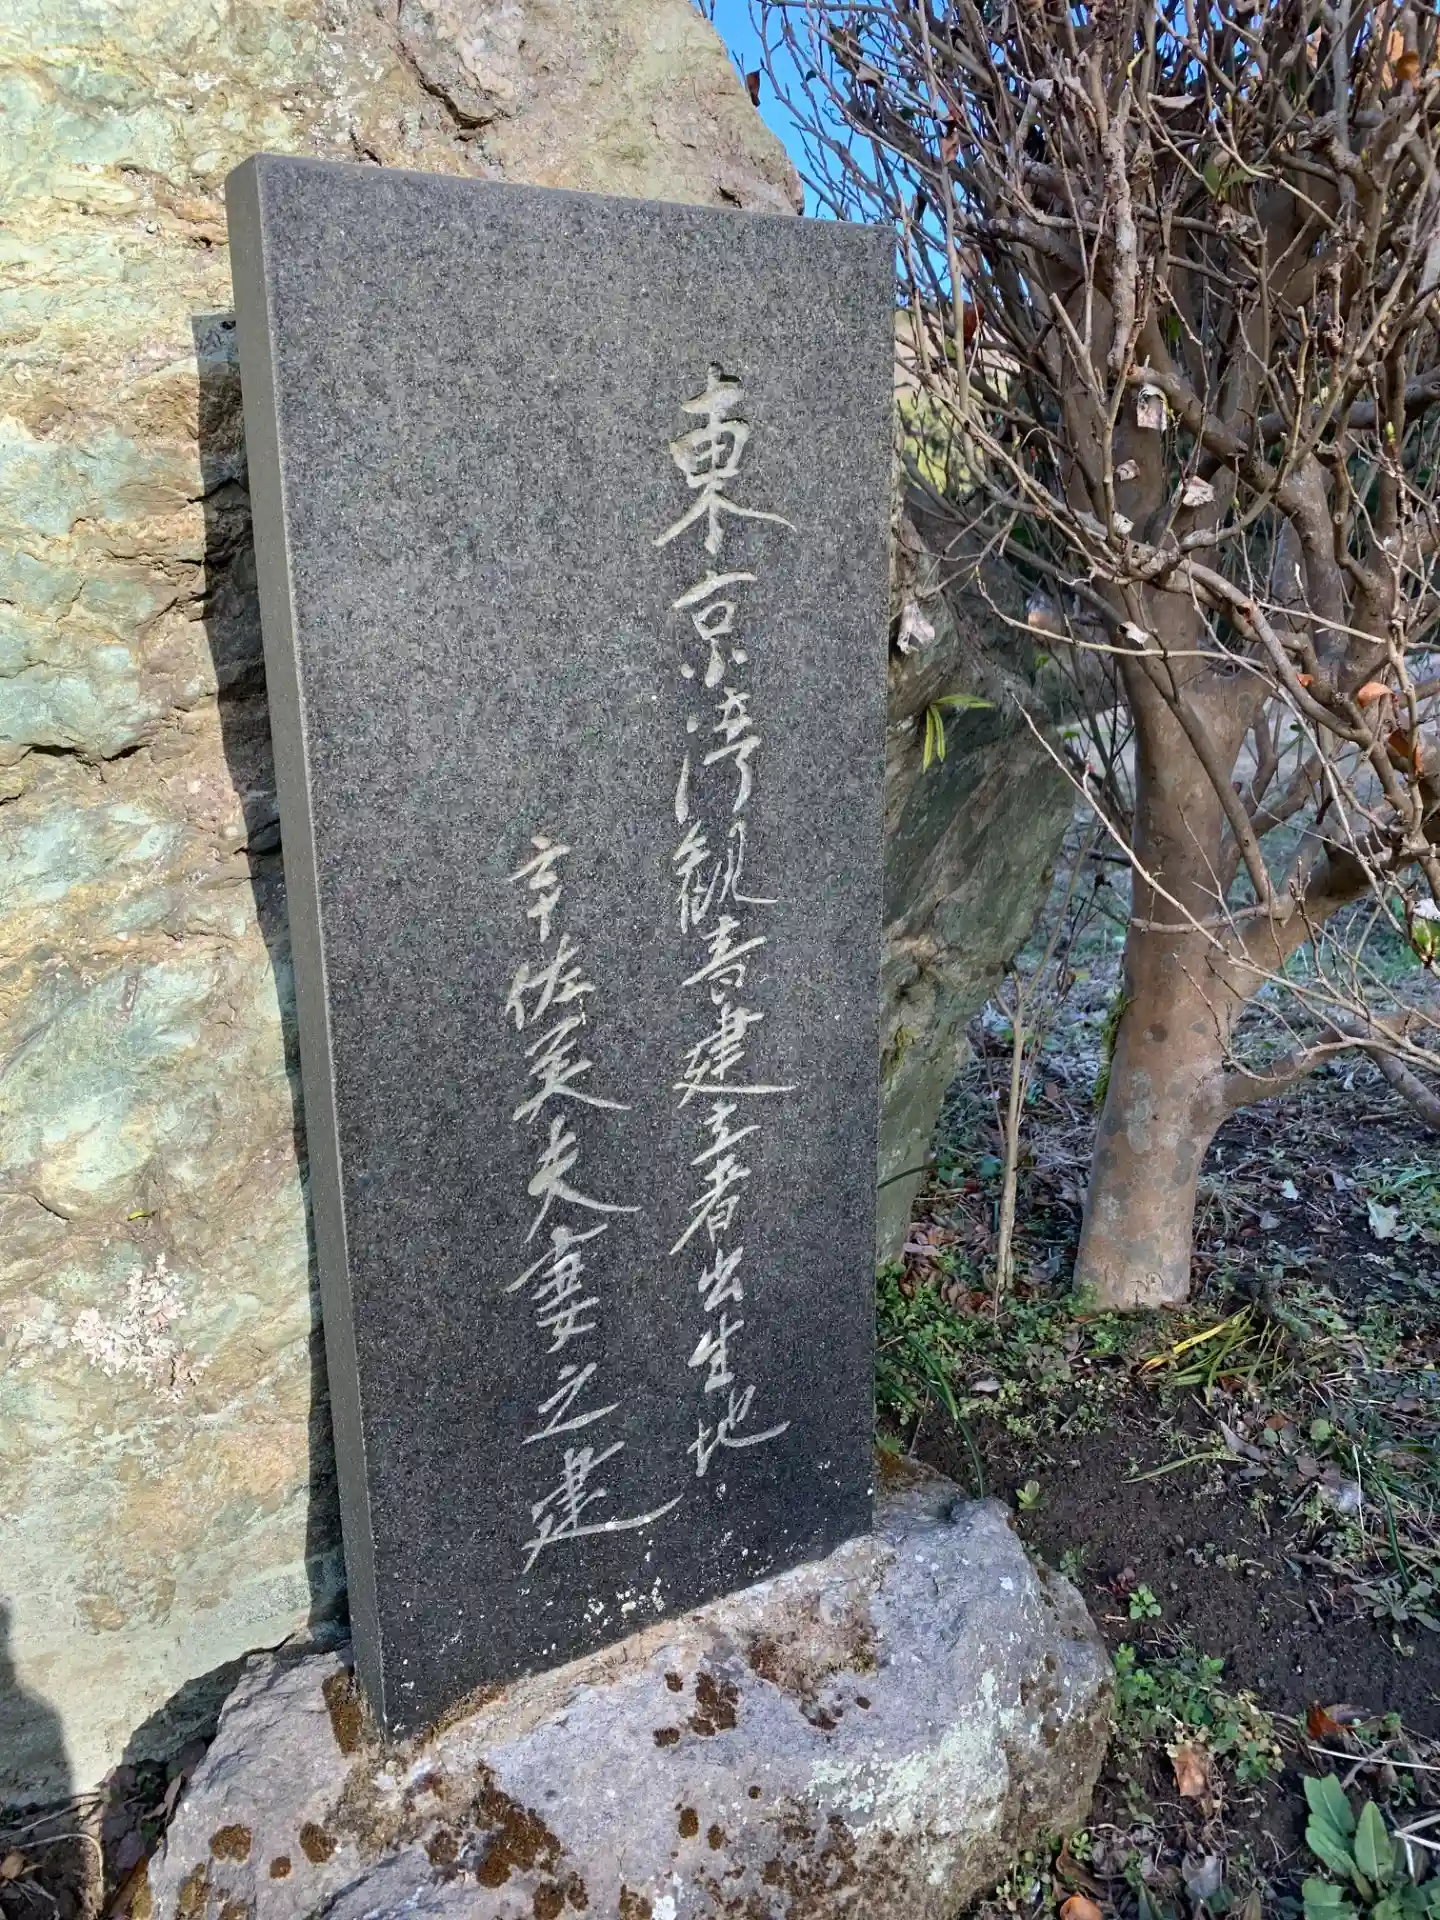 東京湾観音建立者出生地
宇佐美夫妻之建